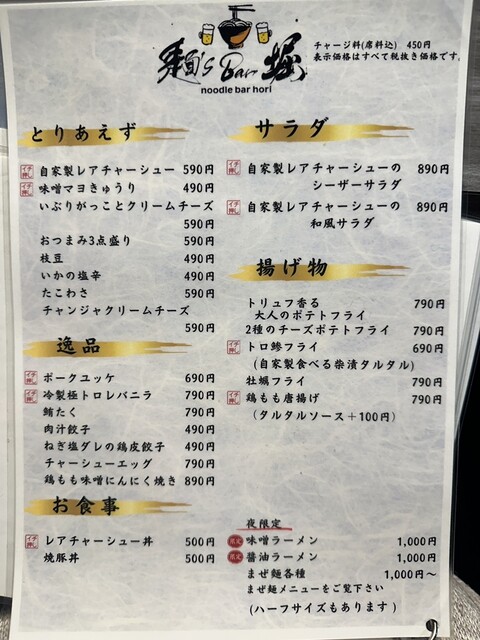 麺's Bar 堀
noodle bar hori
チャージ料(席料込) 450円
表示価格はすべて税抜き価格です。
とりあえず
イチ押し 自家製レアチャーシュー 590円
イチ押し 味噌マヨきゅうり 490円
いぶりがっことクリームチーズ
590円
おつまみ3点盛り 590円
枝豆 490円
いかの塩辛 490円
たこわさ 590円
チャンジャクリームチーズ
590円
逸品
イチ押し ポークユッケ 690円
イチ押し 冷製極トロレバニラ 790円
鮪たく 790円
肉汁餃子 490円
ねぎ塩ダレの鶏皮餃子 490円
チャーシューエッグ 790円
鶏もも味噌にんにく焼き 890円
お食事
イチ押し レアチャーシュー丼 500円
焼豚丼 500円
サラダ
イチ押し 自家製レアチャーシューの 890円
シーザーサラダ
イチ押し 自家製レアチャーシューの 890円
和風サラダ
揚げ物
トリュフ香る 790円
大人のポテトフライ
2種のチーズポテトフライ 790円
イチ押し トロ鯵フライ 690円
(自家製食べる柴漬タルタル)
牡蠣フライ 790円
イチ押し 鶏もも唐揚げ 790円
(タルタルソース+100円)
夜限定
味噌ラーメン 1,000円
醤油ラーメン 1,000円
まぜ麺各種 1,000円~
まぜ麺メニューをご覧下さい
(ハーフサイズもあります)